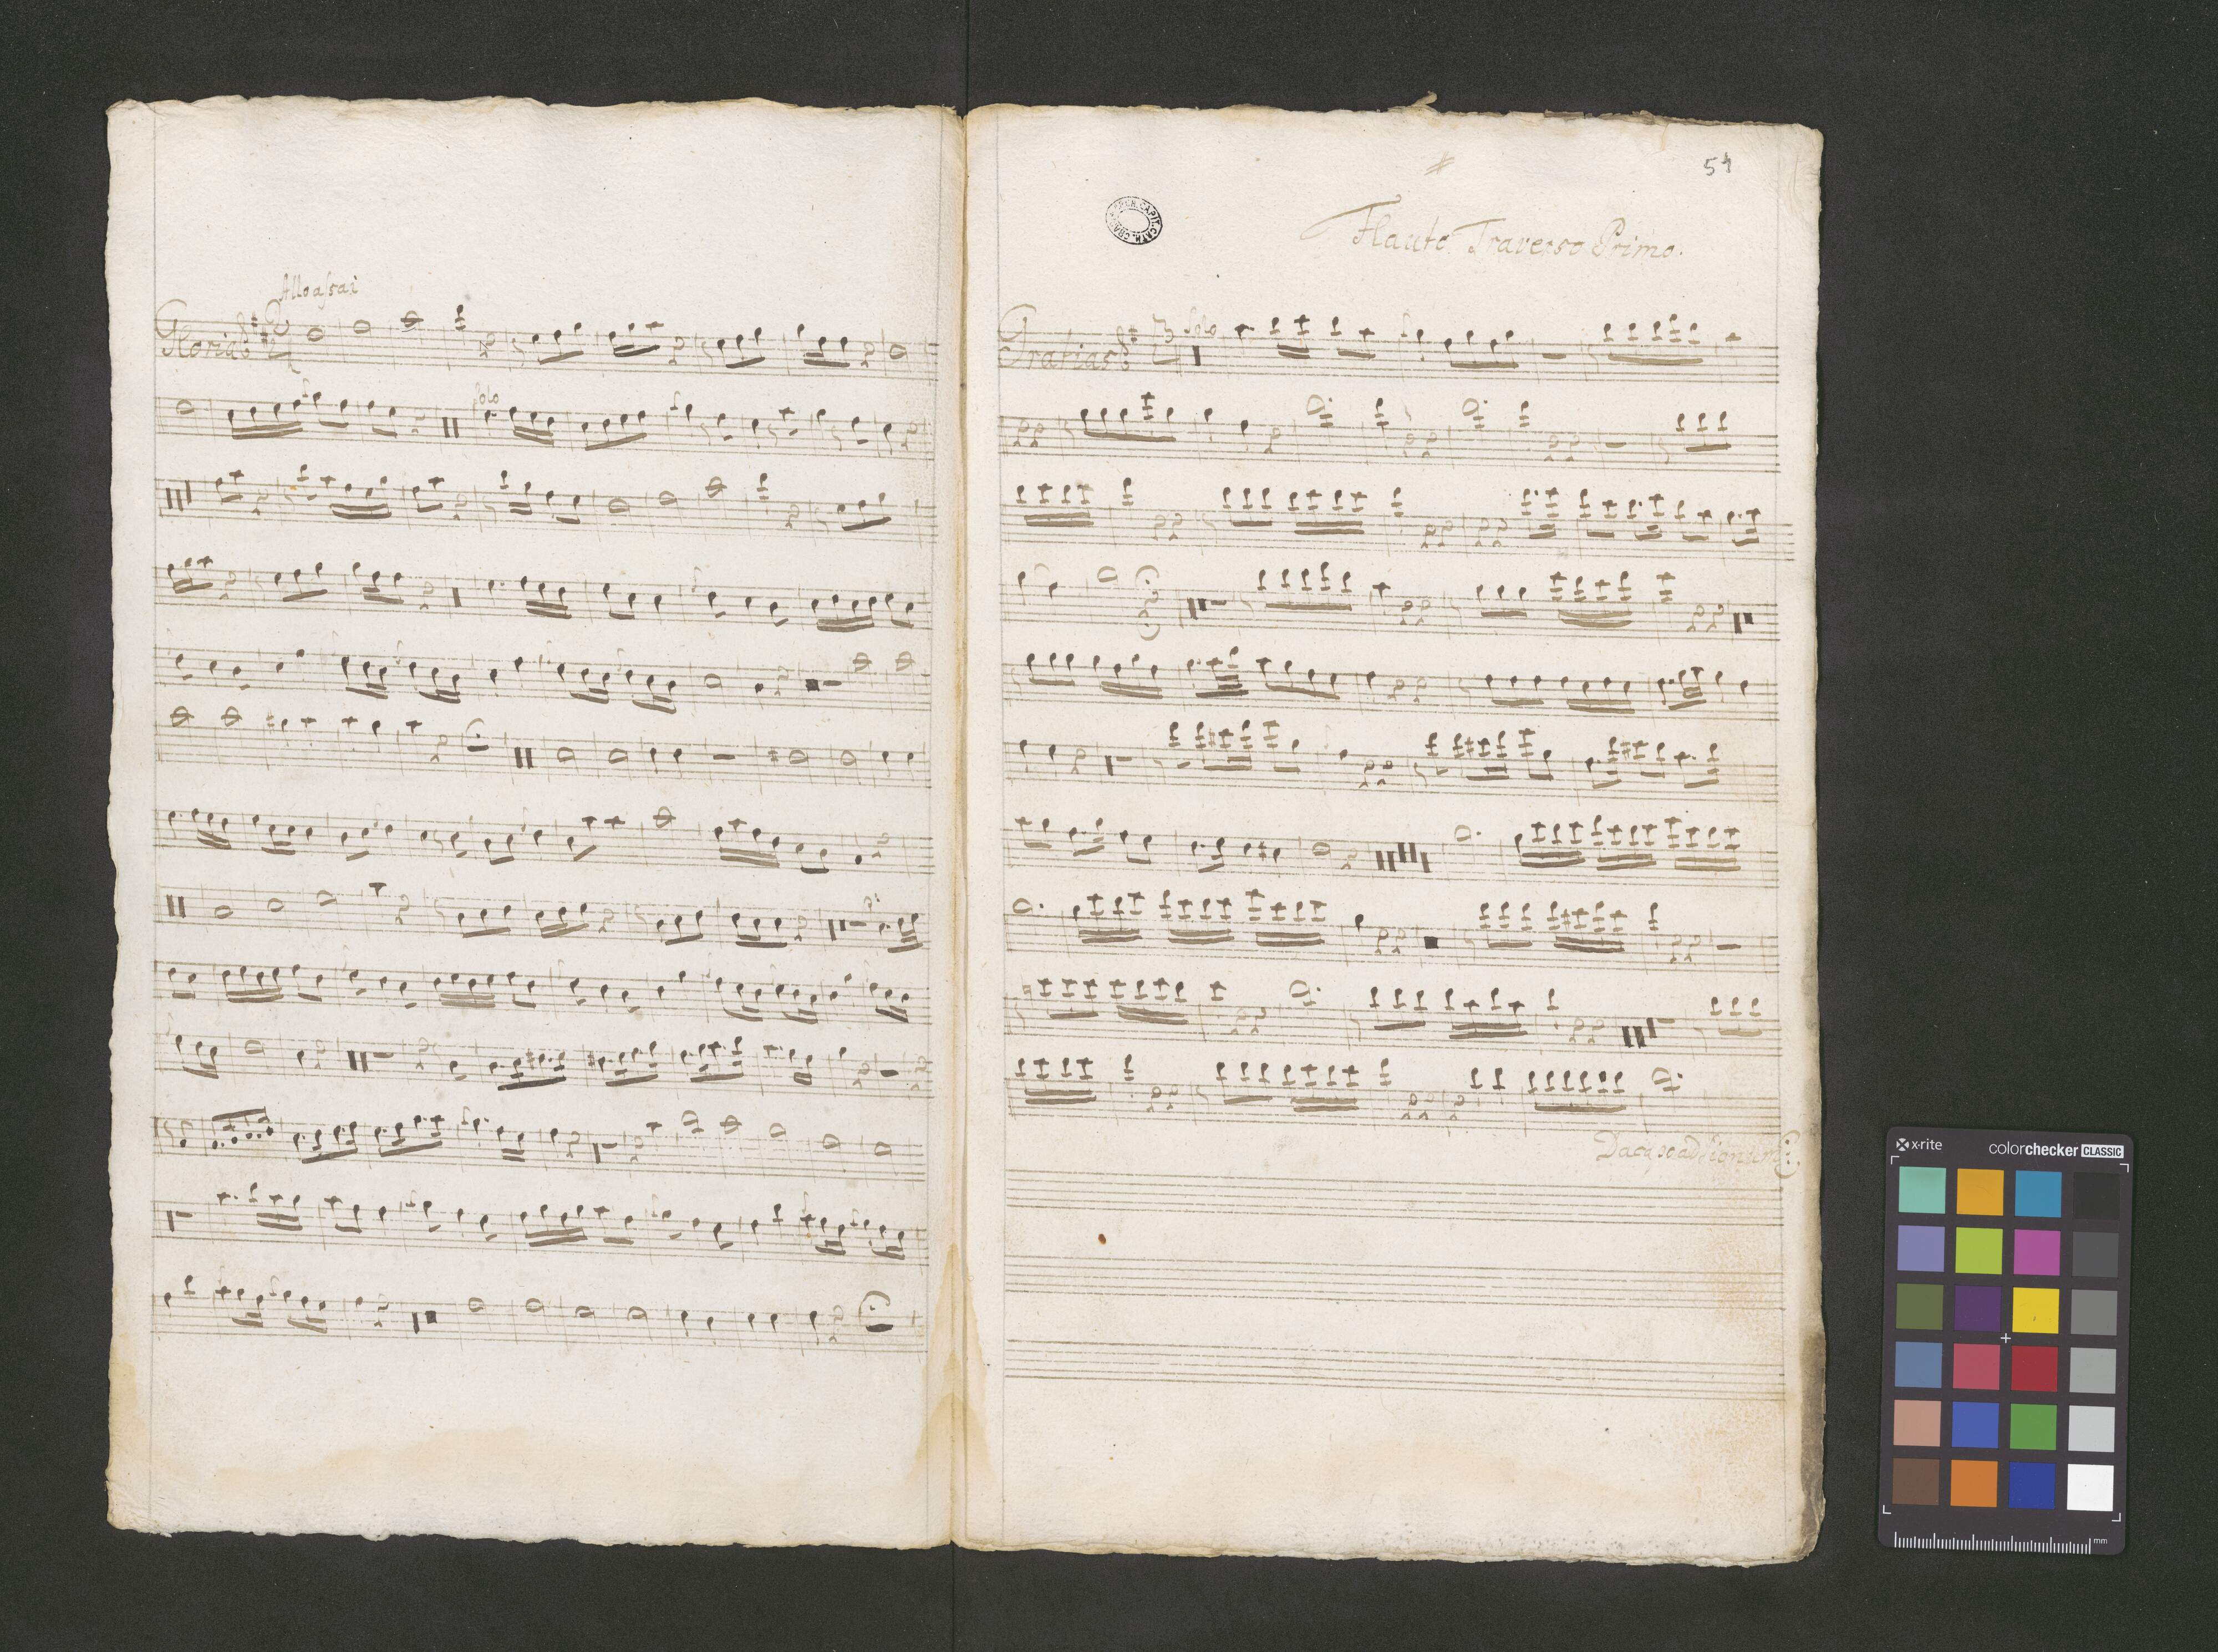 Allo assai
Gloria
Solo
54
Flauto Traverso Primo.
ARCH. CAPIT. CATH. CRAC.
Gratias
3
Solo
Da capo ad Signum
x-rite
colorchecker CLASSIC
mm